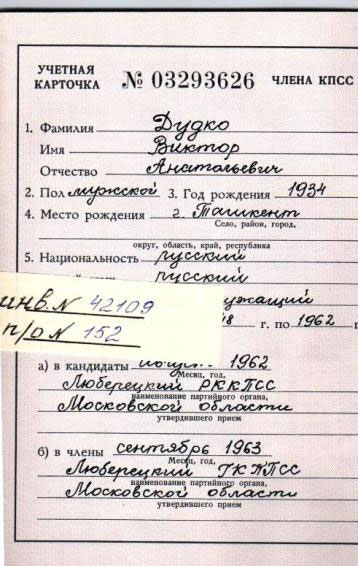 УЧЕТНАЯ КАРТОЧКА № 03293626 ЧЛЕНА КПСС
1. Фамилия Дудко
Имя Виктор
Отчество Анатольевич
2. Пол мужской 3. Год рождения 1934
4. Место рождения г. Ташкент
Село, район, город,
округ, область, край, республика
5. Национальность русский
русский
инв. № 42109
п/о № 152
г. по 1962 г
а) в кандидаты 1962
Месяц, год,
Люберецкий РККПСС
наименование партийного органа,
Московской области
утвердившего прием
б) в члены сентябрь 1963
Месяц, год,
Люберецкий ГК КПСС
наименование партийного органа,
Московской области
утвердившего прием